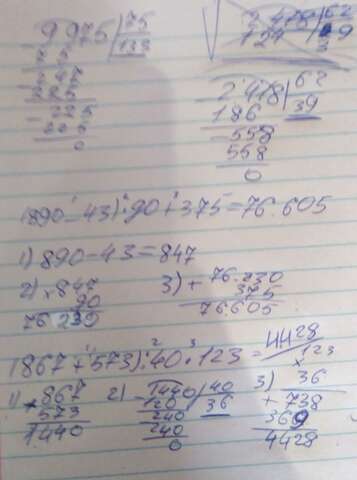 9975 | 75
133
225
225
0
2418 | 62
186 39
558
558
0
(890-43)·90+375=76.605
1) 890-43=847
2) × 847
90
76 230
3) + 76.230
375
76.605
(867+573):40·123=4428
1) + 867
573
1440
2) 1440 | 40
120 36
240
240
0
3) × 123
36
+ 738
369
4428